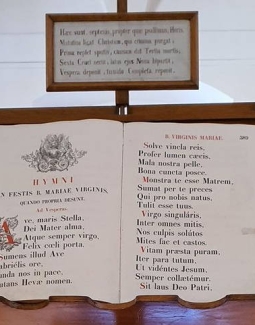 Haec sunt, septenis, propter quae psallimus, horis.
Matutina ligat Christum, qui crimina purgat;
Prima replet sputis; causam dat Tertia mortis;
Sexta Cruci nectit; latus ejus Nona bipertit;
Vespera deponit; tumulo Completa reponit.
HYMNI
IN FESTIS B. MARIAE VIRGINIS,
QUANDO PROPRIA DESUNT.
Ad Vesperas.
Ave, maris Stella,
Dei Mater alma,
Atque semper virgo,
Felix cœli porta.
Sumens illud Ave
Gabriélis ore,
Funda nos in pace,
Mutans Hevæ nomen.
B. VIRGINIS MARIAE.
Solve vincla reis,
Profer lumen cæcis,
Mala nostra pelle,
Bona cuncta posce.
Monstra te esse Matrem,
Sumat per te preces
Qui pro nobis natus,
Tulit esse tuus.
Virgo singuláris,
Inter omnes mitis,
Nos culpis solútos
Mites fac et castos.
Vitam præsta puram,
Iter para tutum,
Ut vidéntes Jesum,
Semper collætémur.
Sit laus Deo Patri,